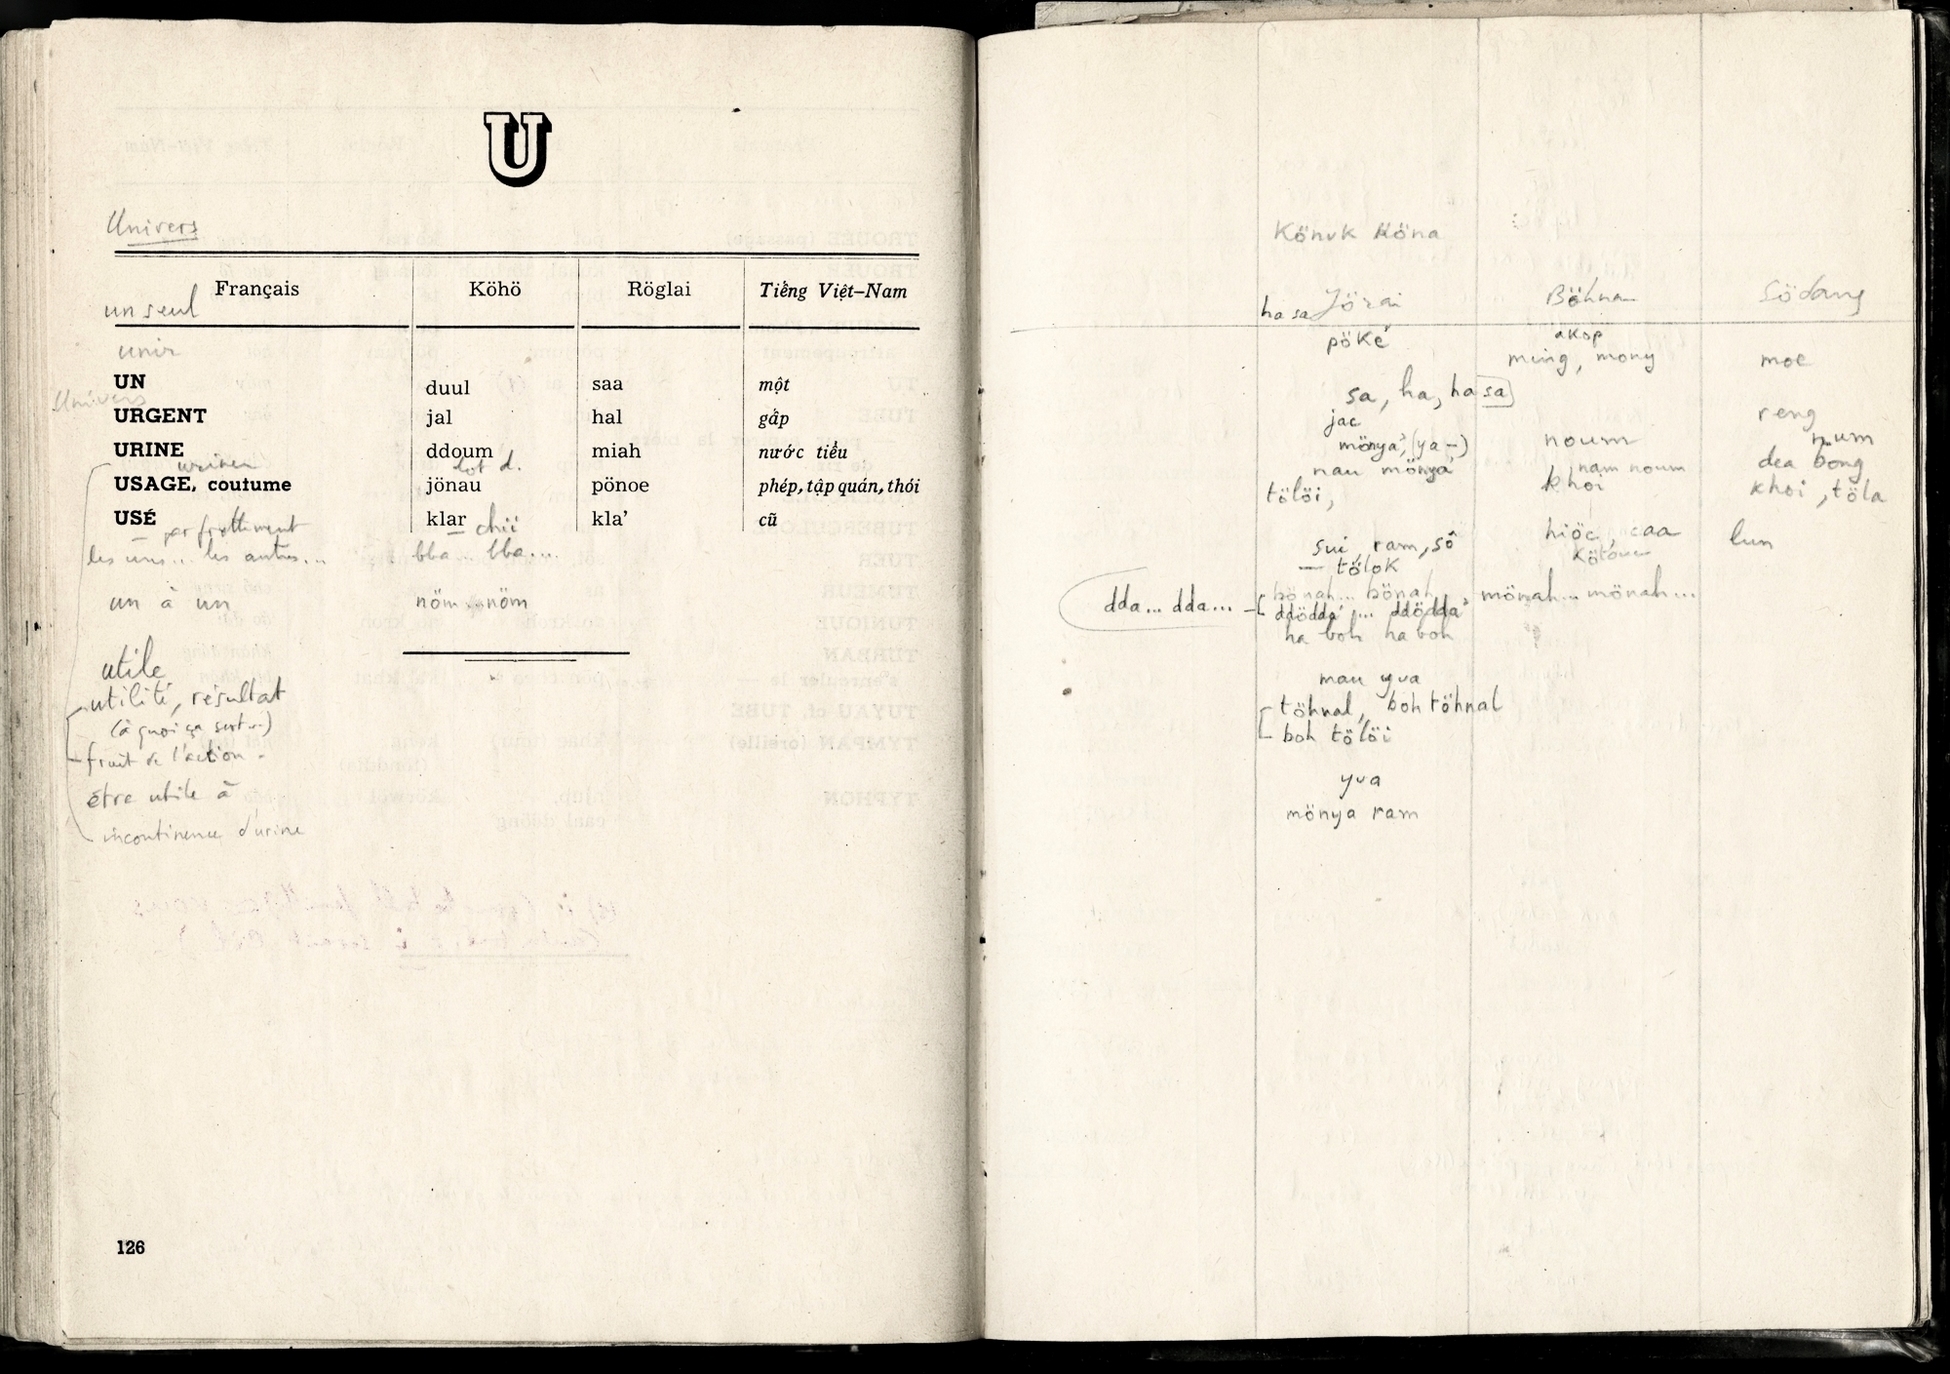 U
Univers
Français Köhö Röglai Tiếng Việt–Nam
un seul
unir
UN duul saa một
Univers
URGENT jal hal gấp
URINE ddoum miah nước tiểu
uriner tot d.
USAGE, coutume jönau pönoe phép, tập quán, thói
USÉ klar chii kla’ cũ
— par frottement
les uns... les autres... bba... bba....
un à un nöm nöm
utile
utilité, résultat
(à quoi ça sert...)
fruit de l'action -
être utile à
incontinence d'urine
126
Könuk Köna
ha sa Jörai Böhna Södang
pöké akop
ming, mony moe
sa, ha, ha sa
jac reng
mönya, (ya –) noum num
nau mönya nam noum dea bong
tölöi, khoi khoi, töla
sui, ram, sô hiöc, caa lun
— tölok
dda... dda... bönah... bönah mönah... mönah...
ddödda ... ddödda
ha boh ha boh
mau yua
töhnal, boh töhnal
boh tölöi
yua
mönya ram